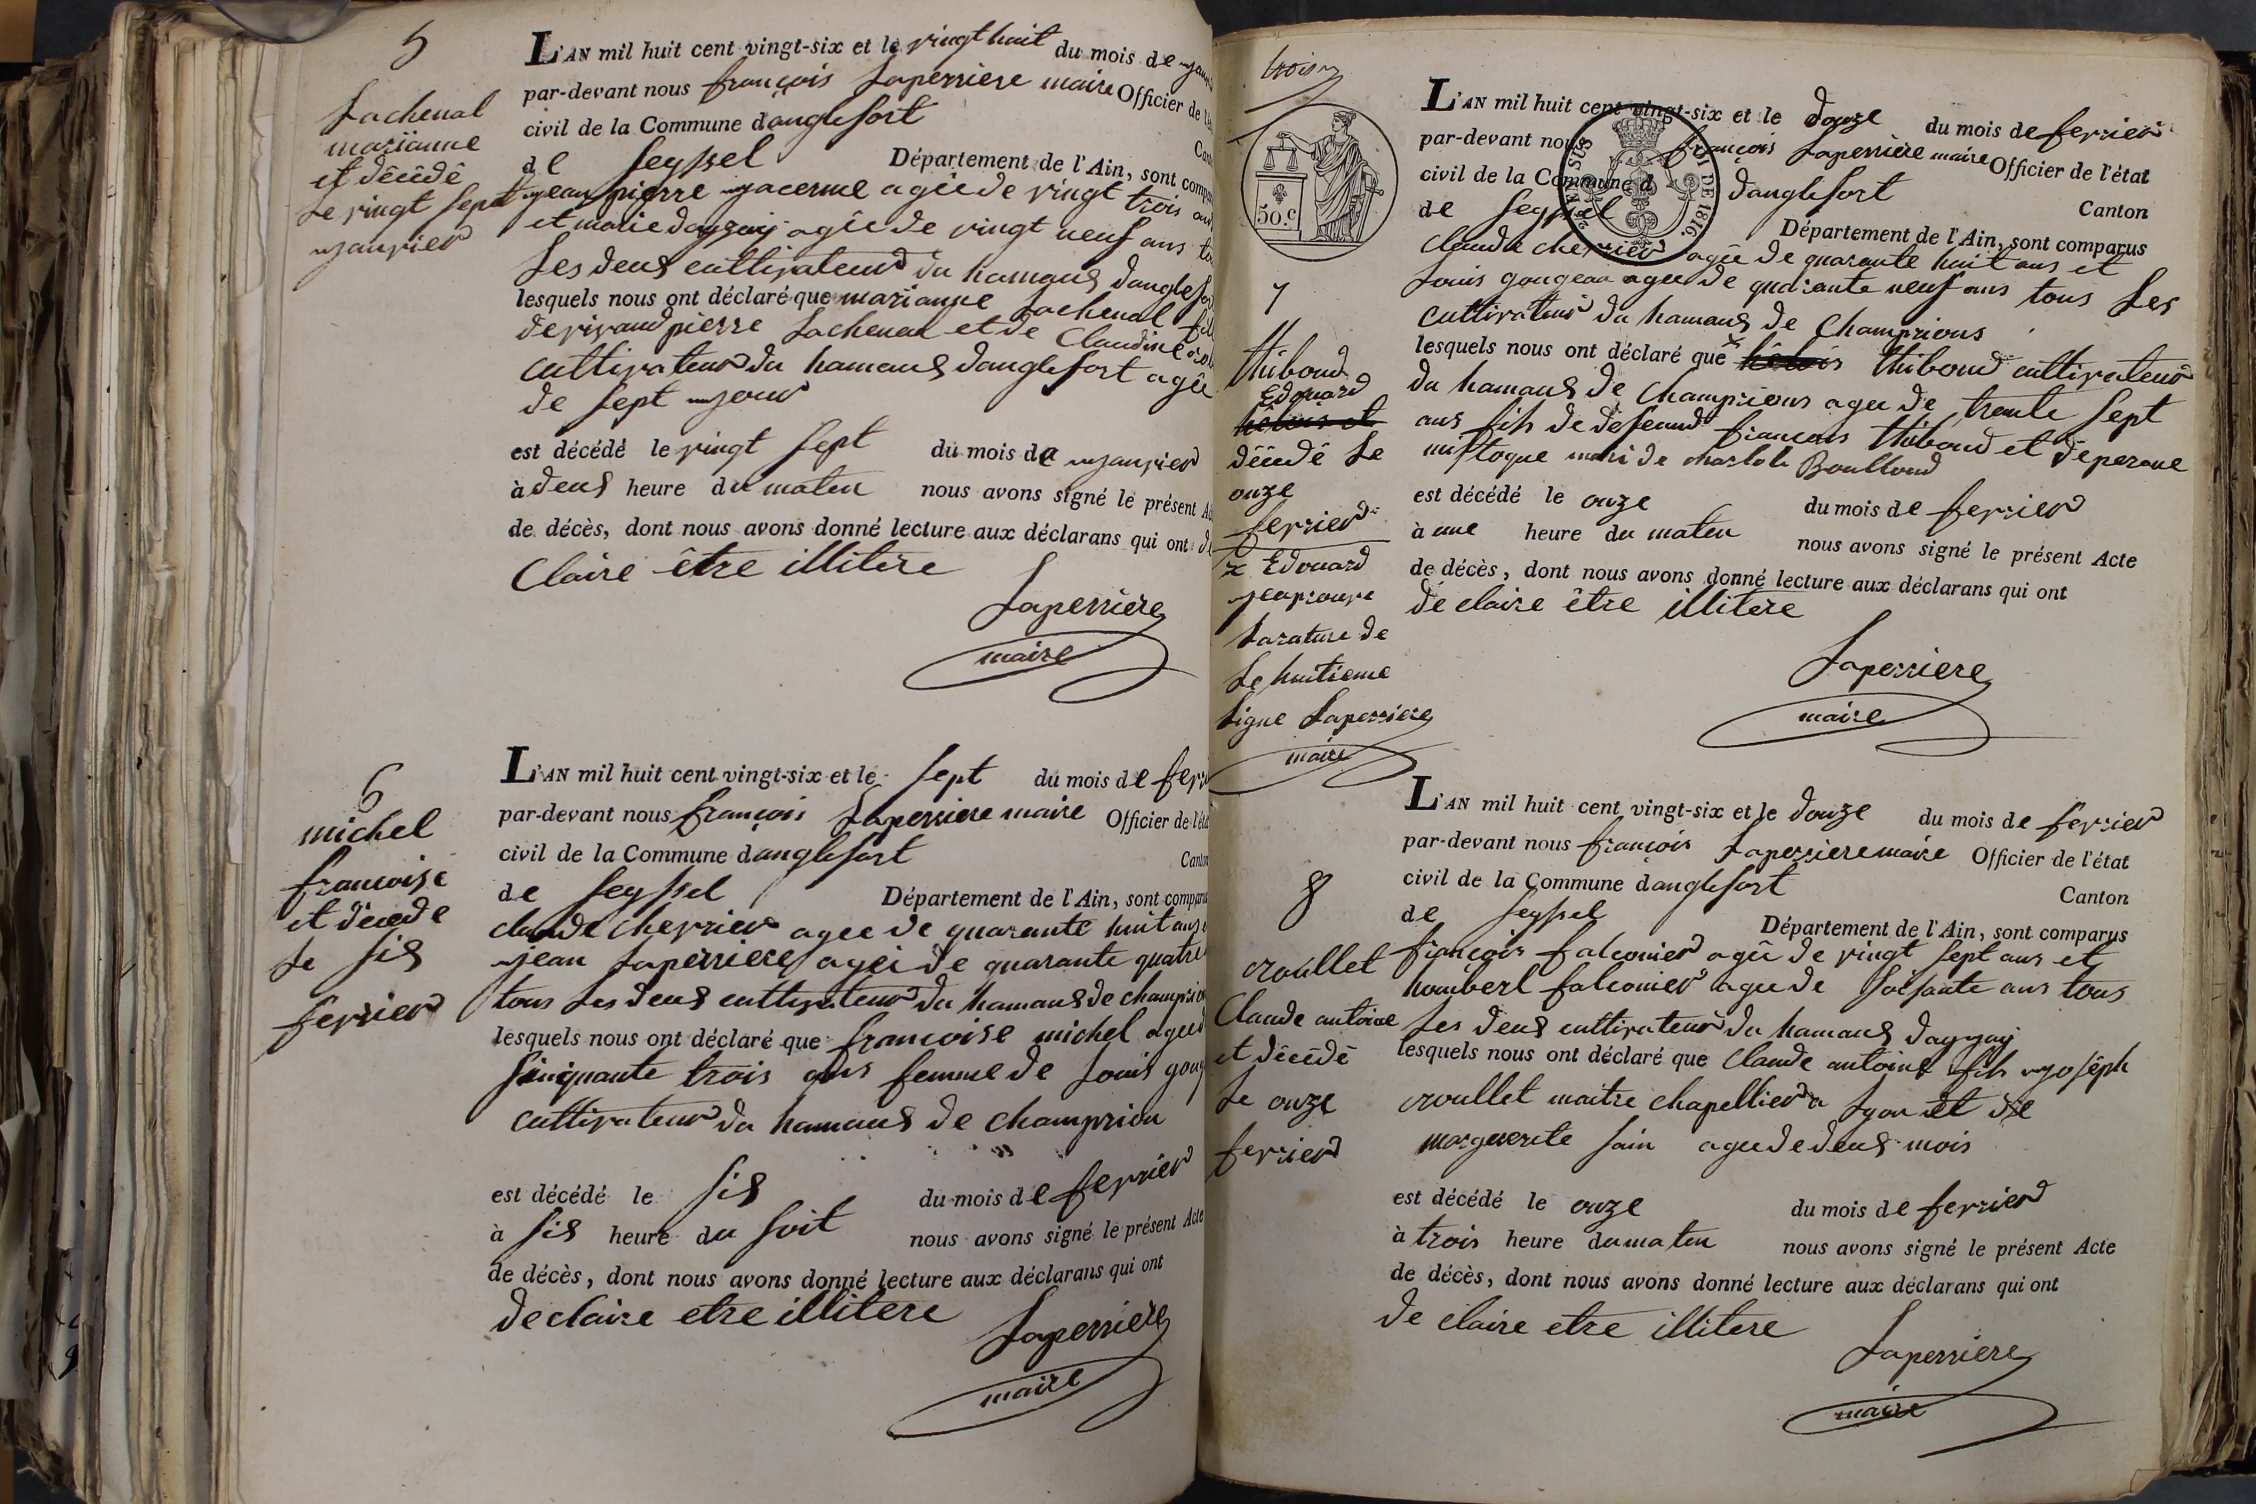 5
Lachenal
marianne
et décédé
Le vingt sept
janvier
L'AN mil huit cent vingt-six et le vingt huit du mois de janv
par-devant nous françois Laperriere maire Officier de l'ét
civil de la Commune danglefort Cant
de Seyssel Département de l'Ain, sont compa
jean pierre jacerme agée de vingt trois ans
et marie dagzay agée de vingt neuf ans to
Les deus cultivateur du hamaus danglefor
lesquels nous ont déclaré que marianne Lachenal fil
de pierre Lachenal et de Claudine
cultivateur du hamaus danglefort agée
de sept jour
est décédé le vingt sept du mois de janvier
à deus heure du maten nous avons signé le présent Ac
de décès, dont nous avons donné lecture aux déclarans qui ont dé
Claire être illitere
Laperriere
maire
6
michel
francoise
et décede
Le sis
fevrier
L'AN mil huit cent vingt-six et le sept du mois de fevr
par-devant nous françois Laperriere maire Officier de l'éta
civil de la Commune danglefort Canton
de Seyssel Département de l'Ain, sont comparu
claude chevrier agee de quarante huit ans e
jean Laperriere agéi de quarante quatre
tous Les deus cultivateur du hamaus de champrion
lesquels nous ont déclaré que francoise michel agee d
sinquante trois ans femme de Louis goug
cultivateur du hamaus de champriou
est décédé le sis du mois de fevrier
à sis heure du soit nous avons signé le présent Acte
de décès, dont nous avons donné lecture aux déclarans qui ont
de claire etre illitere
Laperriere
maire
trois
50.c
LOI DE 1816
7
thiboud
Edouard
décedé Le
onze
fevrier
x Edouard
japrouve
Larature de
Le huitieme
Ligne Laperriere
maire
L'AN mil huit cent vingt-six et le douze du mois de fevrier
par-devant nous françois Laperriere maire Officier de l'état
civil de la Commune d danglefort Canton
de Seyssel Département de l'Ain, sont comparus
Claude chevrier agée de quarante huit ans et
Louis gougeau agee de quarante neuf ans tous Les
cultivateur du hamaus de Champrions
lesquels nous ont déclaré que x thiboud cultivateur
du hamaus de Champrions agee de trente sept
ans fils de defeund francois thiboud et de perone
mistoque mari de charlote Boulloud
est décédé le onze du mois de fevrier
à une heure du maten nous avons signé le présent Acte
de décès, dont nous avons donné lecture aux déclarans qui ont
dé claire être illitere
Laperriere
maire
8
croullet
Claude antoine
et décédé
Le onze
fevrier
L'AN mil huit cent vingt-six et le douze du mois de fevrier
par-devant nous françois Laperriere maire Officier de l'état
civil de la Commune danglefort Canton
de Seyssel Département de l'Ain, sont comparus
françois falconier agée de vingt sept ans et
houiberl falconier agee de soisante ans tous
Les deus cultivateur du hamaus dagzay
lesquels nous ont déclaré que Claude antoine fils joséph
croullet maitre chapellier a Lyon et de
marguerite sain agee de deus mois
est décédé le onze du mois de fevrier
à trois heure du maten nous avons signé le présent Acte
de décès, dont nous avons donné lecture aux déclarans qui ont
de claire etre illitere
Laperriere
maire